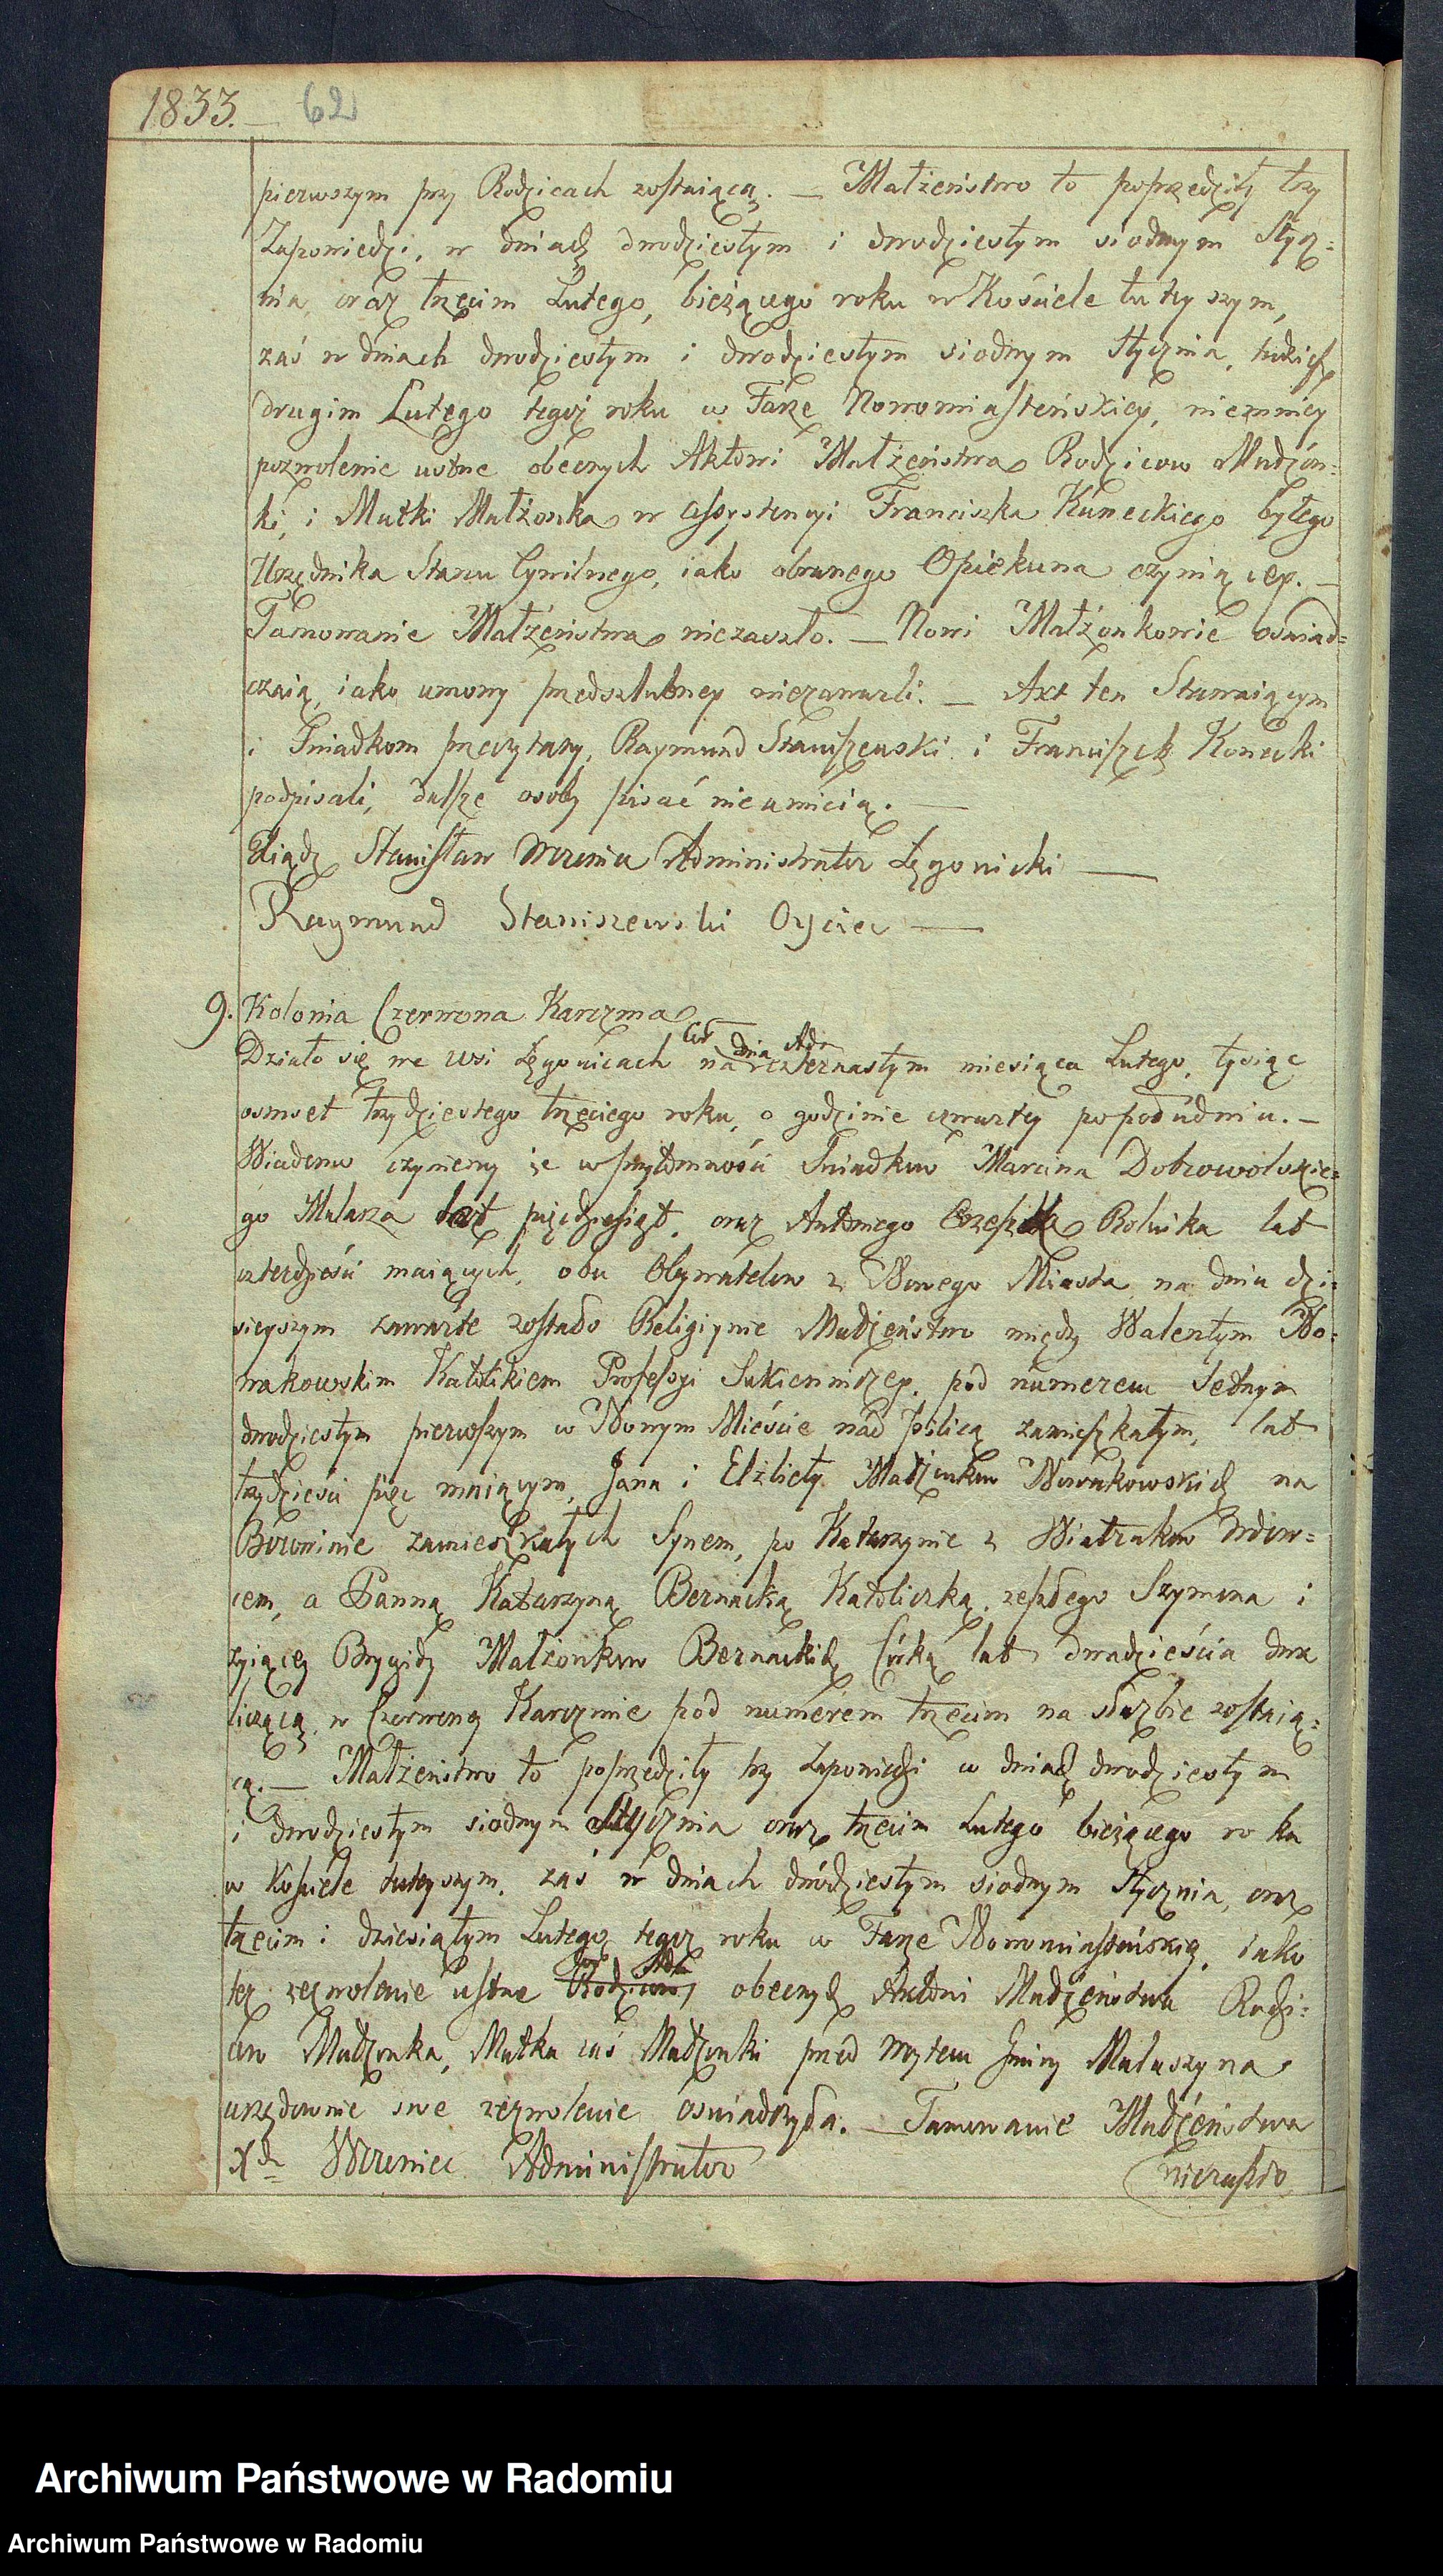 1833. 62
pierwszym przy Rodzicach zostaiącą. — Małżeństwo to poprzedziły trzy
Zapowiedzi, w dniach dwudziestym i dwudziestym siodmym Stycz-
nia, oraz trzecim Lutego, bieżącego roku w Kościele tuteyszym,
zaś w dniach dwudziestym i dwudziestym siodmym Stycznia, tudzież
drugim Lutego tegoż roku w Farze Nowomiasteńskiey, niemniey
pozwolenie ustne obecnych Aktowi Małżeństwa Rodzicow Małżon-
ki, i Matki Małżonka w assystencyi Franciszka Kuneckiego byłego
Urzędnika Stanu Cywilnego, iako obranego Opiekuna czyniącey. —
Tamowanie Małżeństwa niezaszło. — Nowi Małżonkowie oświad-
czaią, iako umowy przedszlubney niezawarli. — Akt ten Stawaiącym
i Świadkom przeczytany, Raymund Staniszewski i Franciszek Konecki
podpisali, dalsze osoby pisać nieumieią. —
Xiądz Stanisław Wrzeniec Administrator Łęgonicki —
Raymund Staniszewski Oyciec —
9. Kolonia Czerwona Karczma
dnia Adm
Działo się we wsi Łęgonicach na czternastym miesiąca Lutego, tysiąc
osmset trzydziestego trzeciego roku, o godzinie czwartey popołudniu. —
Wiadomo czyniemy że w przytomności Świadkow Marcina Dobrowolskie-
go Malarza lat pięćdziesiąt, oraz Antoniego Rolnika lat
czterdzieści maiących, obu Obywatelow z Nowego Miasta, na dniu dzi-
sieyszym zawarte zostało Religiynie Małżeństwo między Walentym No-
wakowskim Katolikiem Professyi Sukienniczey, pod numerem Setnym
dwudziestym pierwszym w Nowym Mieście nad Pilicą zamieszkałym, lat
trzydzieści pięć maiącym, Jana i Elżbiety Małżonkow Nowakowskich na
Borowinie zamieszkałych Synem, po Katarzynie z Wiatrakow Wdow-
cem, a Panną Katarzyną Bernacką Katoliczką, zeszłego Szymona i
żyiącey Brygidy Małżonkow Bernackich Córką lat dwadzieścia dwa
liczącą, w Czerwoney Karczmie pod numerem trzecim na służbie zostaią-
cą. — Małżeństwo to poprzedziły trzy Zapowiedzi w dniach dwudziestym
i dwudziestym siodmym Stycznia oraz trzecim Lutego bieżącego roku
w Kościele tuteyszym, zaś w dniach dwudziestym siodmym Stycznia, oraz
trzecim i dziesiątym Lutego tegoż roku w Farze Nowomiasteńskiey, iako
też zezwolenie ustne Rodzicow obecnych Aktowi Małżeństwa Rodzi-
cow Małżonka, Matka zaś Małżonki przed Woytem Gminy Małuszyna
urzędownie swe zezwolenie oświadczyła. — Tamowanie Małżeństwa
Xdz Wrzeniec Administrator niezaszło
Archiwum Państwowe w Radomiu
Archiwum Państwowe w Radomiu